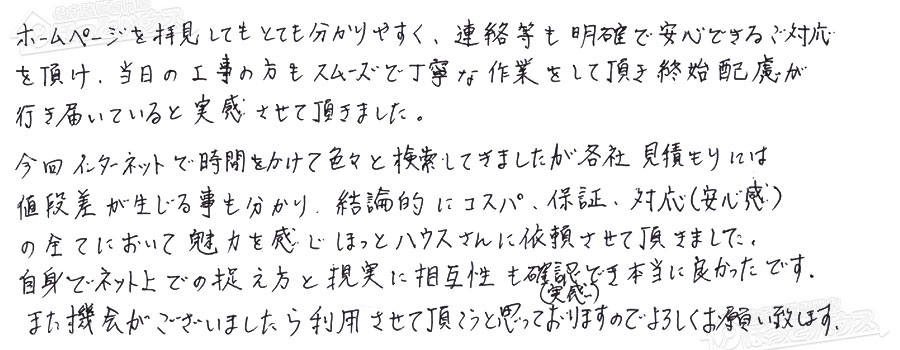 ホームページを拝見してもとても分かりやすく、連絡等も明確で安心できるご対応
を頂け、当日の工事の方もスムーズで丁寧な作業をして頂き終始配慮が
行き届いていると実感させて頂きました。
今回インターネットで時間をかけて色々と検索してきましたが各社見積もりには
値段差が生じる事も分かり、結論的にコスパ、保証、対応(安心感)
の全てにおいて魅力を感じほっとハウスさんに依頼させて頂きました。
自身でネット上での捉え方と現実に相互性も確認でき本当に良かったです。
(実感)
また機会がございましたら利用させて頂こうと思っておりますのでよろしくお願い致します。